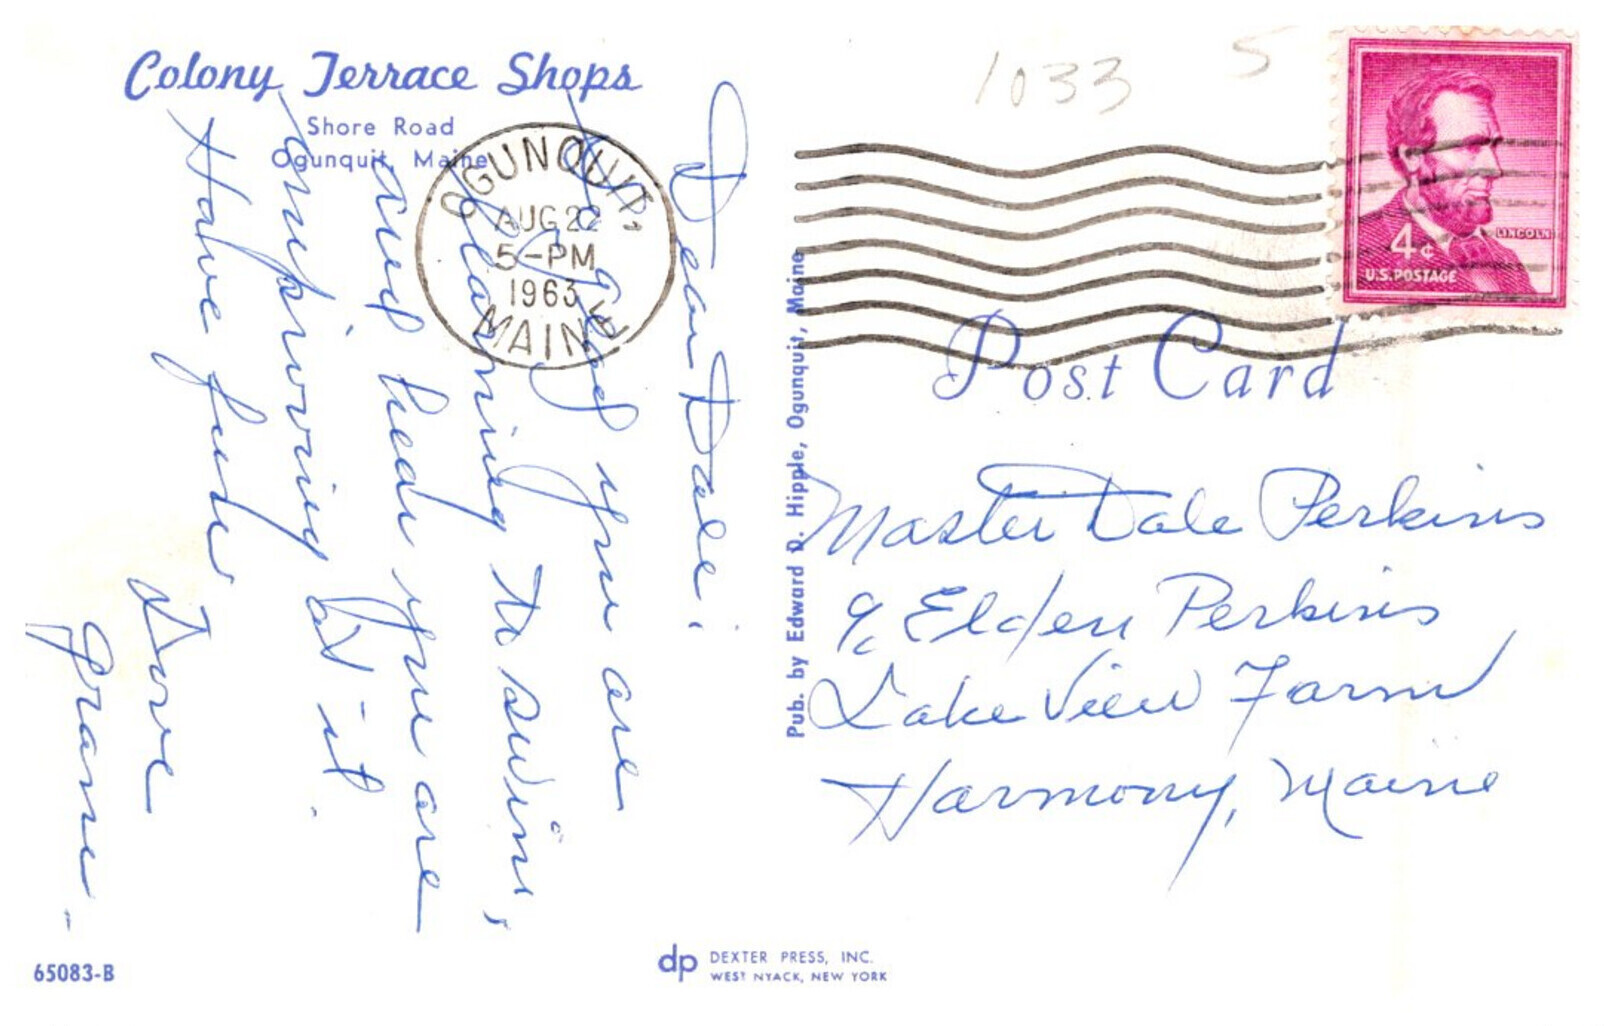 Colony Terrace Shops
Shore Road
Ogunquit, Maine
Dear Dale:
So glad you are
learning to swim,
and hear you are
improving at it.
Have fun
Love
Grame -
OGUNQUIT,
AUG 22
5-PM
1963
MAINE
1033
5
LINCOLN
4¢
U.S. POSTAGE
Post Card
Master Dale Perkins
% Elden Perkins
Lake View Farm
Harmony, Maine
Pub. by Edward D. Hipple, Ogunquit, Maine
65083-B
dp DEXTER PRESS, INC.
WEST NYACK, NEW YORK